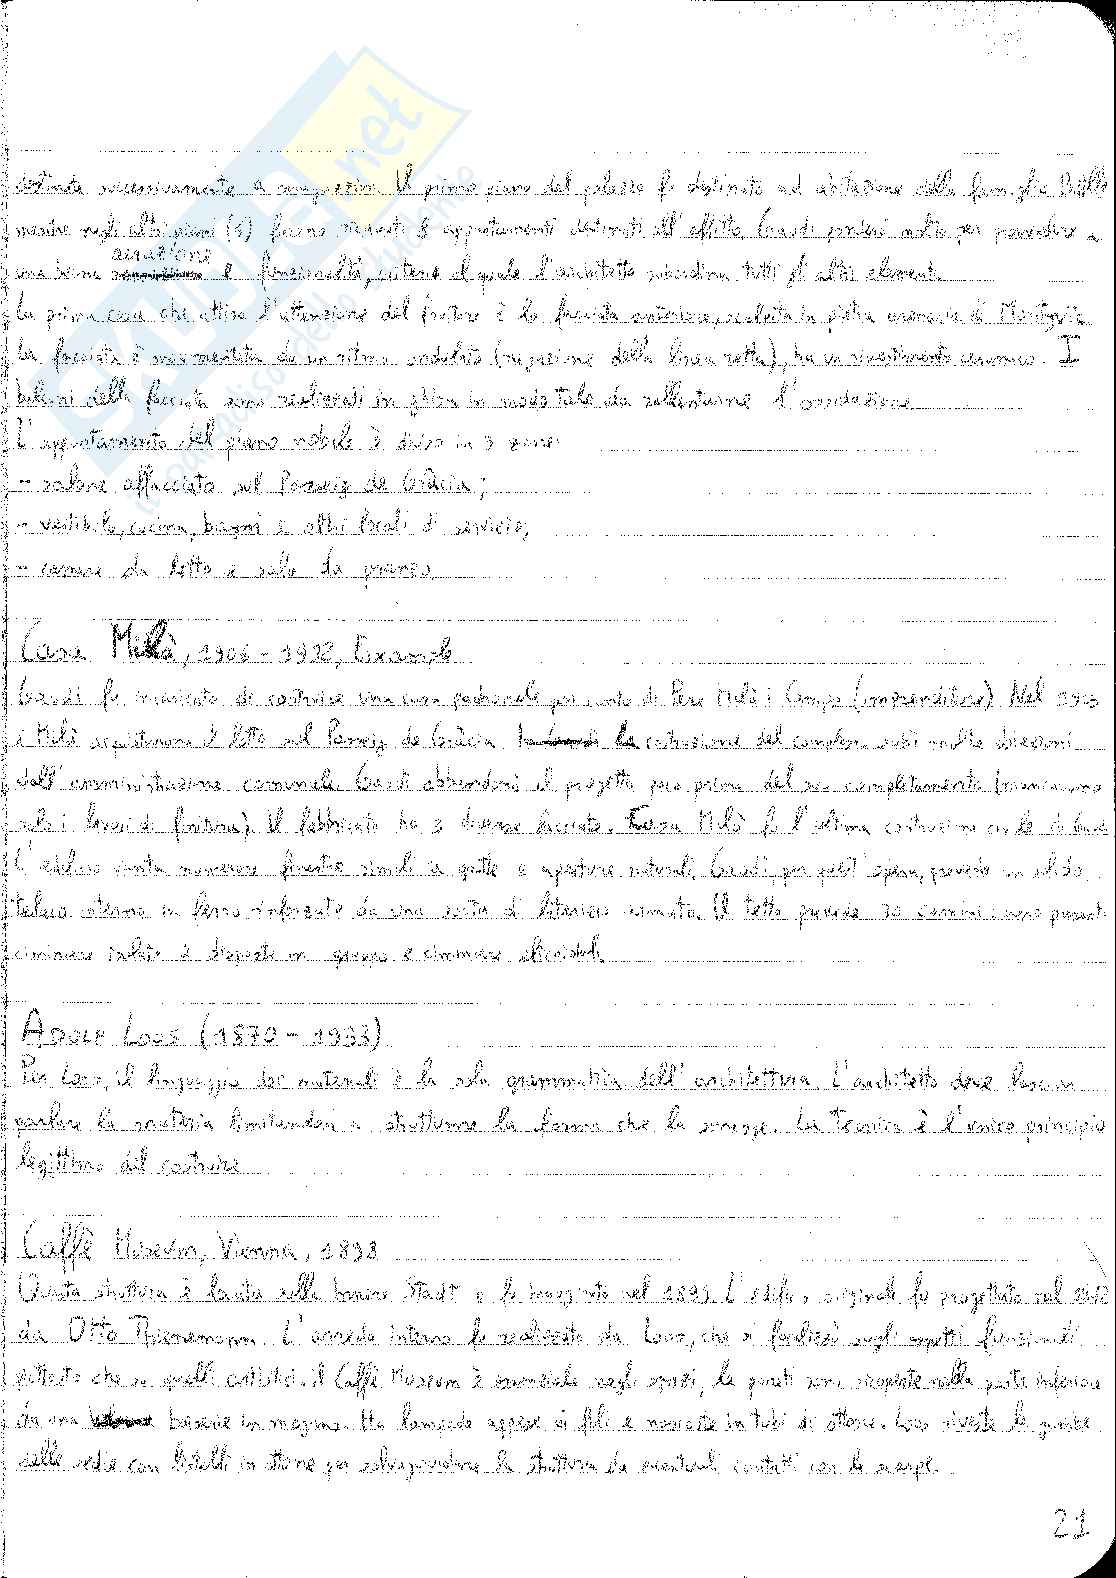 destinate successivamente a magazzini. Il primo piano del palazzo fu destinato ad abitazione della famiglia Batllò
mentre negli altri piani (6) furono ricavati 8 appartamenti destinati all'affitto. Gaudí pensò molto per provvedere a
una buona aerazione e funzionalità, criterio al quale l'architetto subordina tutti gli altri elementi.
La prima cosa che attira l'attenzione del fruitore è la facciata anteriore, scolpita in pietra arenaria di Montjuic.
La facciata è movimentata da un ritmo ondulato (negazione della linea retta), ha un rivestimento ceramico. I
balconi della facciata sono realizzati in ghisa in modo tale da
L'appartamento del piano nobile è diviso in 3 zone:
- salone affacciato sul Passeig de Gràcia;
- vestibolo, cucina, bagni e altri locali di servizio;
- camere da letto e sala da pranzo.
Casa Milà, 1906 - 1912, Eixample
Gaudí fu incaricato di costruire una casa padronale per conto di Pere Milà i Camps (imprenditore). Nel
i Milà acquistarono il lotto sul Passeig de Gràcia. la costruzione del complesso subì molte
dall'amministrazione comunale. Gaudí abbandonò il progetto poco prima del suo completamento (mancavano
solo i lavori di finitura). Il fabbricato ha 3 diverse facciate. Casa Milà fu l'ultima costruzione civile di Gaudí.
L'edificio vanta numerose finestre simili a grotte e aperture naturali. Gaudí, per quest'opera, prevede un solido
telaio interno in ferro da una sorta di laterizio armato. Il tetto prevede 30 camini: sono presenti
ciminiere isolate e disposte in gruppo e ciminiere elicoidali.
Adolf Loos (1870 - 1933)
Per Loos, il linguaggio dei materiali è la sola grammatica dell'architettura. L'architetto deve lasciar
parlare la materia limitandosi a strutturare la forma che la sorregge. La Tecnica è l'unico principio
legittimo del costruire.
Caffè Museum, Vienna, 1898
Questa struttura è situata nella Innere Stadt e fu inaugurato nel 1899. L'edificio originale fu progettato nel
da Otto Thienemann. L'arredo interno fu realizzato da Loos, che si focalizzò sugli aspetti funzionali
piuttosto che su quelli artistici. Il Caffè Museum è essenziale negli spazi, le pareti sono ricoperte nella parte inferiore
da una boiserie in mogano. Ha lampade appese ai fili e nascoste in tubi di ottone. Loos riveste le gambe
delle sedie con listelli in ottone per salvaguardare la struttura da eventuali contatti con le scarpe.
21